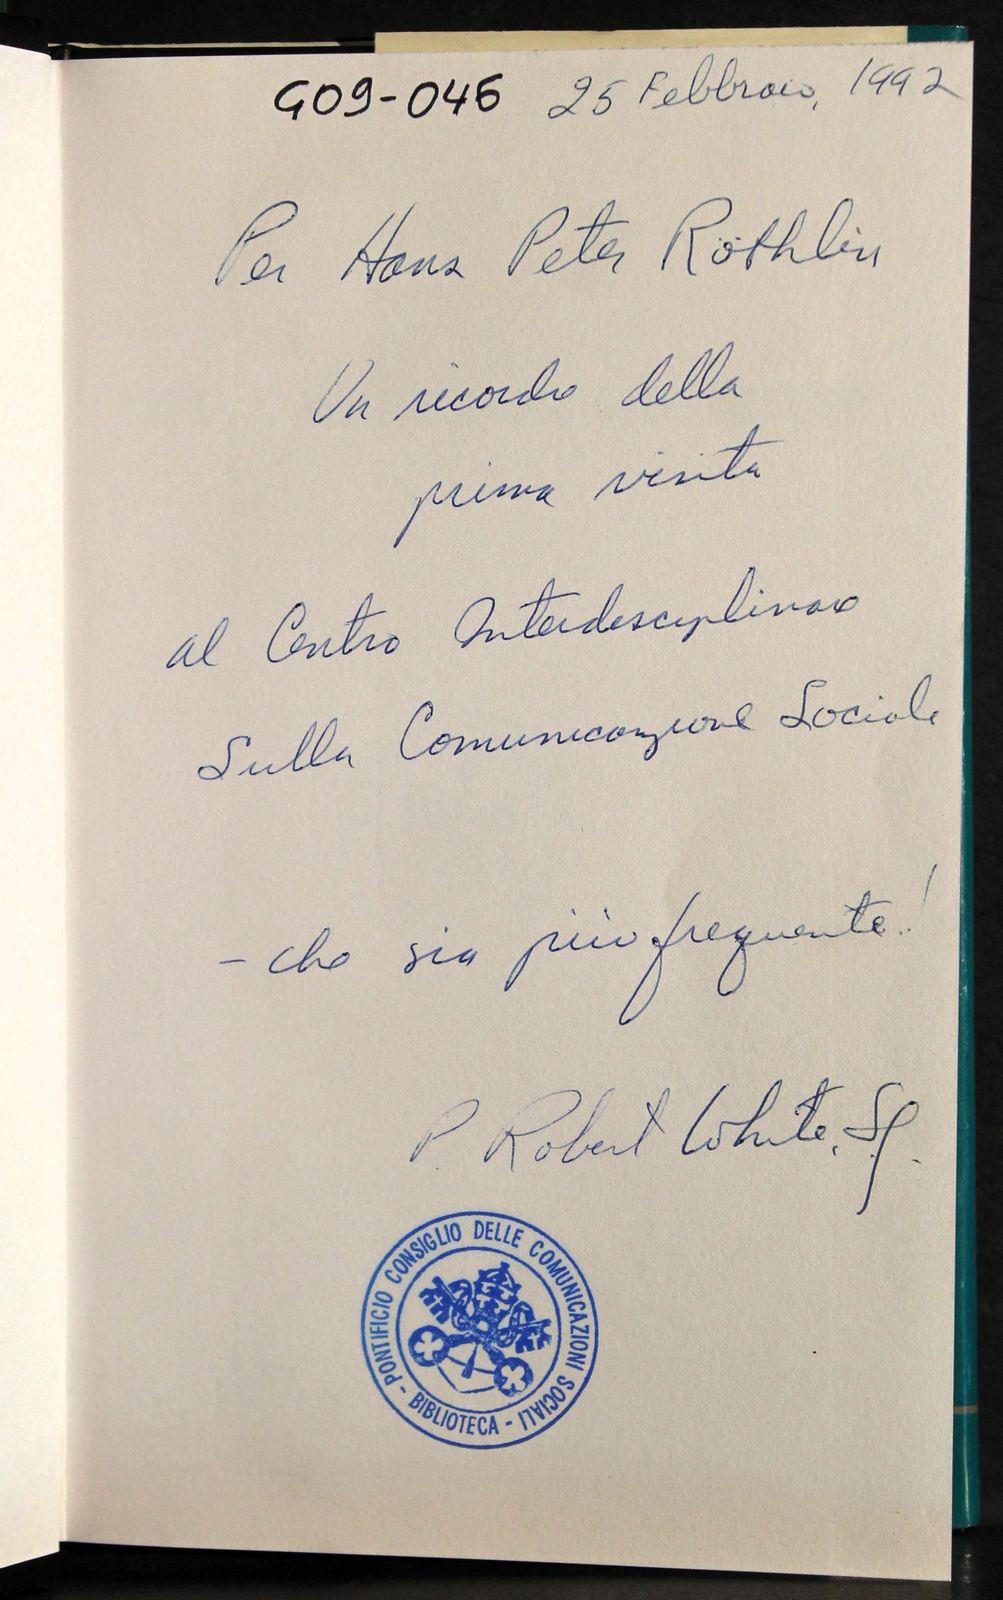 G09-046 25 Febbraio, 1992
Per Hans Peter Röthlin
Un ricordo della
prima visita
al Centro Interdesciplinare
Sulla Comunicazione Sociale
- che sia più frequente!
P. Robert White, S.J.
PONTIFICIO CONSIGLIO DELLE COMUNICAZIONI SOCIALI
- BIBLIOTECA -